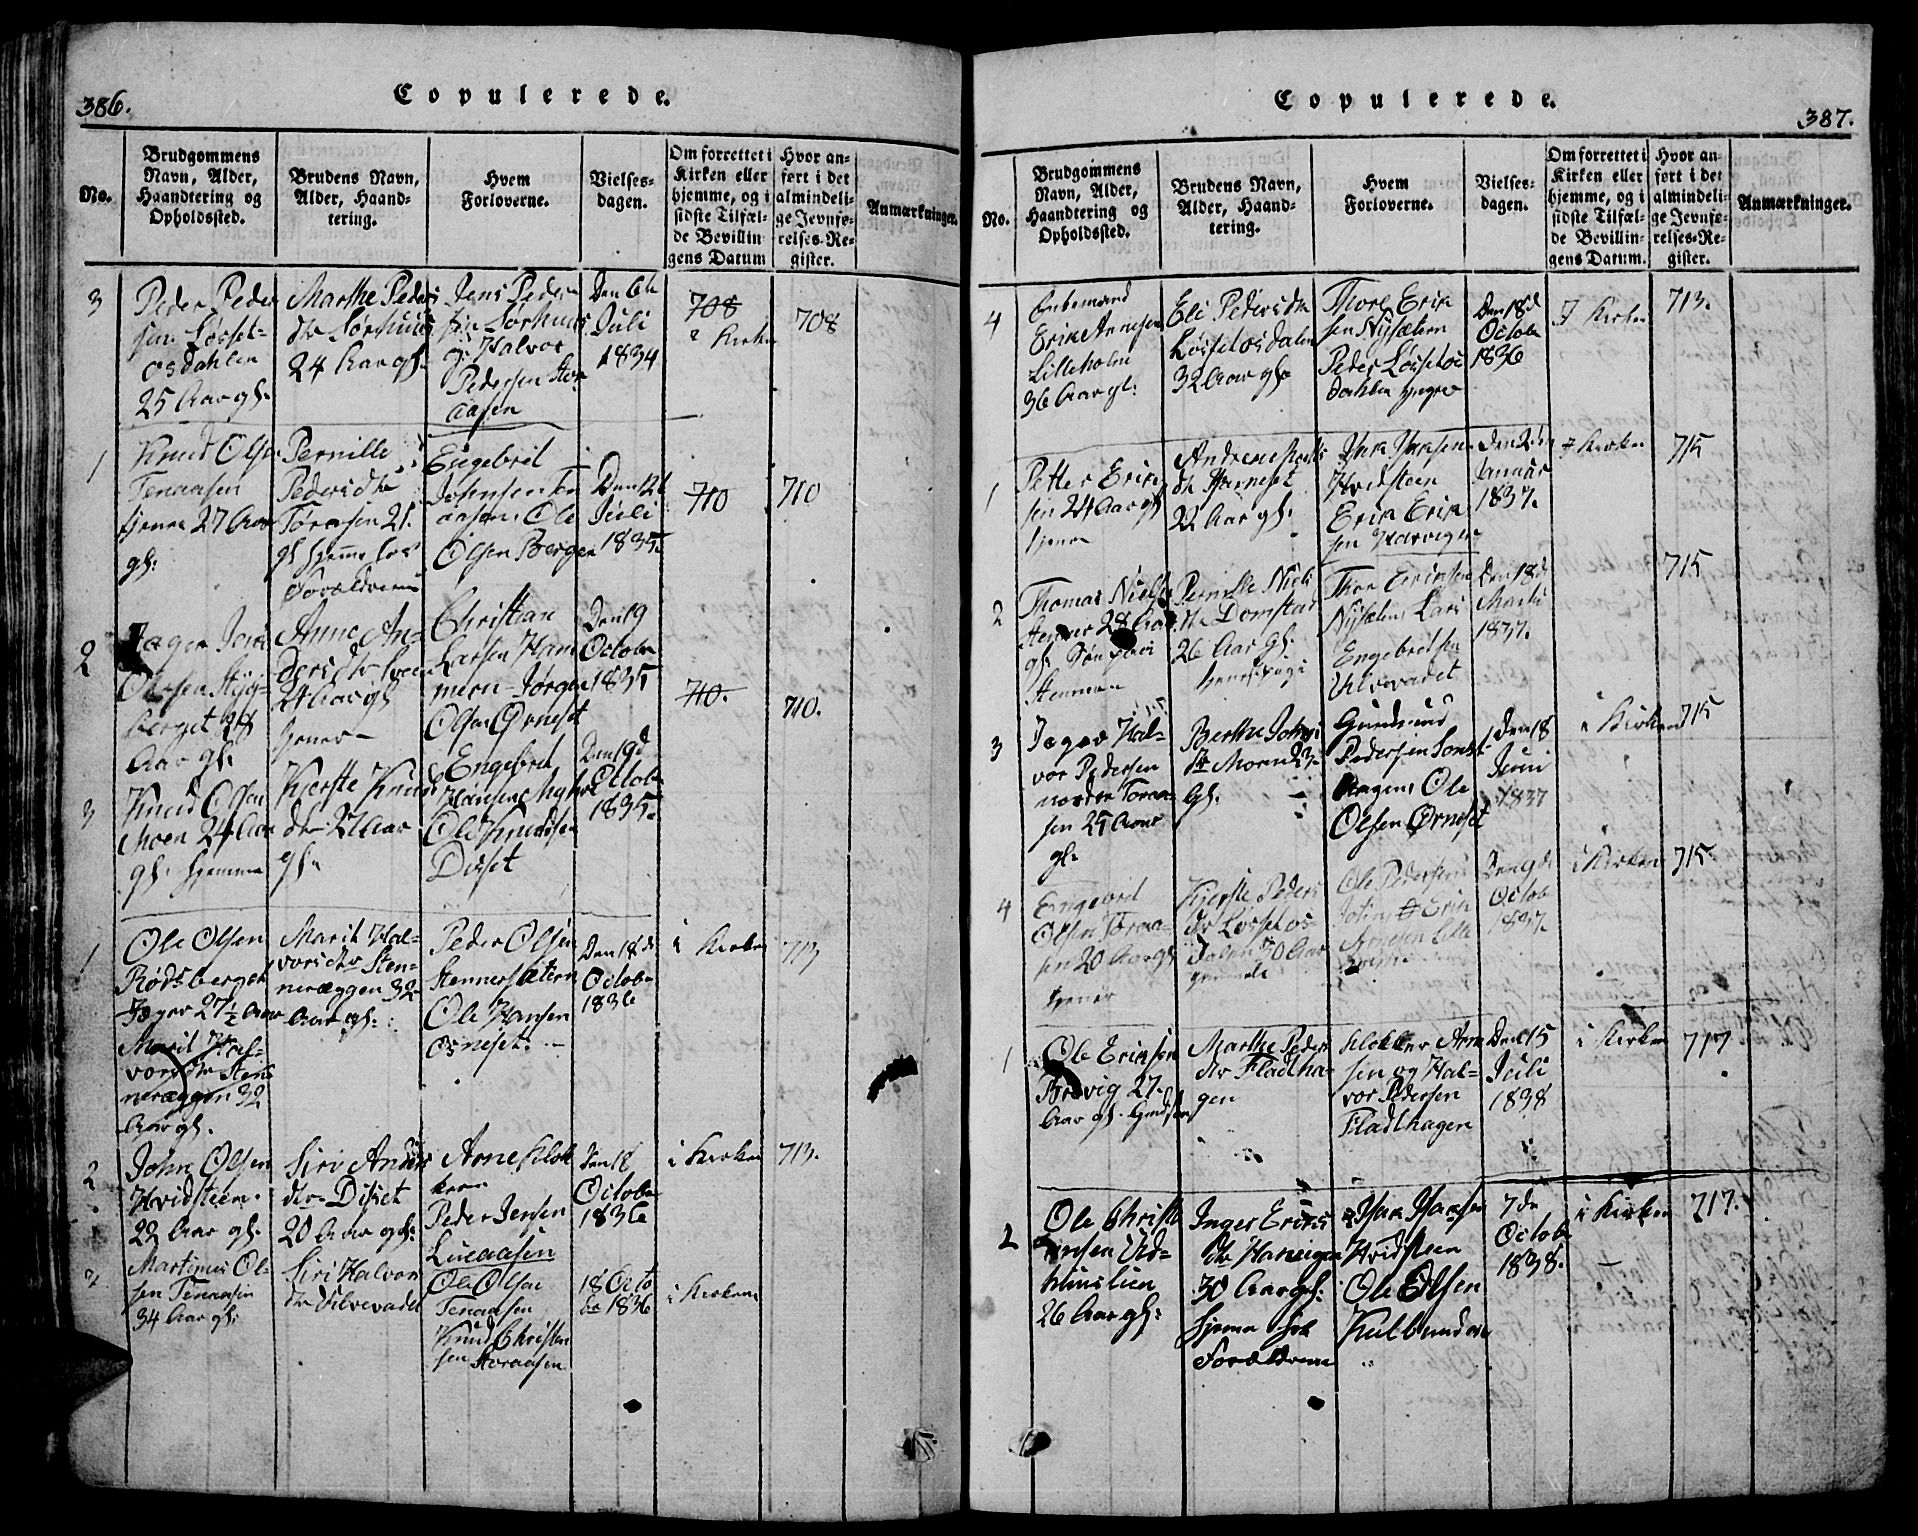 386.
Copulerede.
No.
Brudgommens
Navn, Alder,
Haandtering og
Opholdssted.
Brudens Navn,
Alder, Haand-
tering.
Hvem
Forloverne.
Vielses-
dagen.
Om forrettet i
Kirken eller
hjemme, og i
sidste Tilfæl-
de Bevillin-
gens Datum
Hvor an-
ført i det
almindeli-
ge Jevnfø-
relses-Re-
gister.
Anmærkninger.
3
Peder Peder
sen Losset-
osdahlen
25 Aar gl.
Marthe Peders
dtr Sørhuus
24 Aar gl.
Jens Peder
sen Sorhuus
Halvor
Pedersen Stor
aasen
Den 6te
Juli
1834
708
i Kirken
708
1
Knud Olsen
Tenaasen
hjeme 27 Aar
gl:
Pernille
Pedersdtr
Toraasen 21.
gl hjeme hos
Foreldrene
Engebret
Johnsen
aasen, Ole
Olsen Bergen
Den 12te
Juli
1835
710
710
2
Jæger Jens
Olesen
berget 28
Aar gl.
Anne An-
dersdtr
24 Aar gl
hjeme
Christian
Larsen Ham
mern Jørgen
Olsen Ørneset
Den 19
Octobr
1835
710.
710.
3
Knud Olsen
Moen 24 Aar
gl. hjemme
Kjerste Knuds
dtr 27 Aar
gl.
Engebret
Hansen
Ole Knudsen
Disset
Den 19d
Octob
1835
1
Ole Olsen
Rødsberget
Jæger 27½ Aar
Marit Hal-
vorsdtr Sten
neræggen 32
Aar gl.
Marit Hal-
vorsdtr Sten-
neræggen 32
Aar gl:
Peder Olsen
Stennersætern
Ole Hansen
Orneset.
Den 18de
Octobr
1836
i Kirken
713
2
John Olsen
Hvidsteen.
22 Aar gl.
Siri Anders
dtr Disset
20 Aar gl:
Arne Klok
ker
Peder Jensen
Lueaasen
Den 18
Octobr
1836
i Kirken
713.
Martinus Ol-
sen Tenaasen
34 Aar gl:
Siri Halvors
dtr Ulvevadet
Ole Olsen
Tenaasen
Knud Christen
sen Storaasen
18 Octo
br 1836
i Kirken
387.
Copulerede.
No.
Brudgommens
Navn, Alder,
Haandtering og
Opholdssted.
Brudens Navn,
Alder, Haand-
tering.
Hvem
Forloverne.
Vielses-
dagen.
Om forrettet i
Kirken eller
hjemme, og i
sidste Tilfæl-
de Bevillin-
gens Datum.
Hvor an-
ført i det
almindeli-
ge Jevnfø-
relses-Re-
gister.
Anmærkninger.
4
Enkemand
Erik Arnesen
Lilleholm
36 Aar gl:
Eli Pedersdtr
Losset osdalen
32 Aar gl.
Thore Erik
sen Nysætern
Peder Losset os
Dahlen yngre
Den 18d
Octobr
1836
I Kirken
713.
1
Petter Erik
sen 24 Aar gl
hjeme
Andrene
dtr Harneset
22 Aar gl.
Isak Isaksen
Hvidsteen
Erik Erik
sen Harvigen
Den 2den
Januar
1837.
I Kirken
715
2
Thomas Niels
Stenner 28 Aar
gl.
Stenmoen
Pernille Niels
dtr Domstad
26 Aar gl.
Thore Erichsen
Nysæter, Lars
Engebretsen
Ulvevadet
Den 18d
Marts
1837.
715
3
Jæger Hal-
vor Pedersen
nordre Toraa-
sen 25 Aar
gl.
Berthe Johns
dtr Moen 23
gl.
Gundmund
Pedersen
hagen, Ole
Olsen Ørneset
Den 18
Juni
1837
i Kirken
715
4
Engebret
Olsen Toraa-
sen 20 Aar gl
hjeme
Kjerste Peders
dtr Losset os
Dalen 30 Aar
gamle
Ole Pedersen
Erik
Arnesen Lille
holm
Den 9de
Octob
1837.
i Kirken
715.
1
Ole Eriksen
Brevig 27.
Aar gl.
Marthe Peders
dtr Fladtha-
gen
Klokker Arne
sen og Hal-
vor Pedersen
Fladthagen
Den 15
Juli
1838
i Kirken
717
2
Ole Christi
ansen Ud-
26 Aar gl:
Inger Eriks
dtr Harvigen
30 Aar gl:
hjeme hos
Foreldrene
Isak Isaksen
Hvidsteen
Ole Olsen
7de
Octobr
1838.
i Kirken
717.